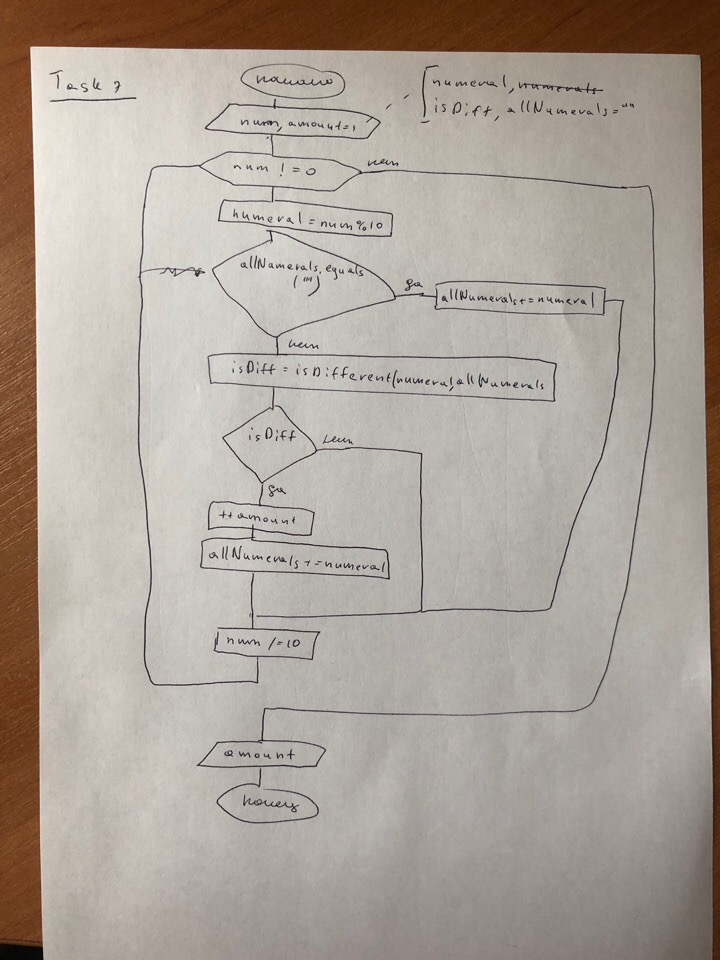 Task 7
начало
numeral, numerals
isDiff, allNumerals=""
num, amount=1
num != 0
нет
numeral = num%10
allNumerals.equals
("")
да
allNumerals+=numeral
нет
isDiff = isDifferent(numeral,allNumerals
isDiff
нет
да
++amount
allNumerals+=numeral
num /=10
amount
конец